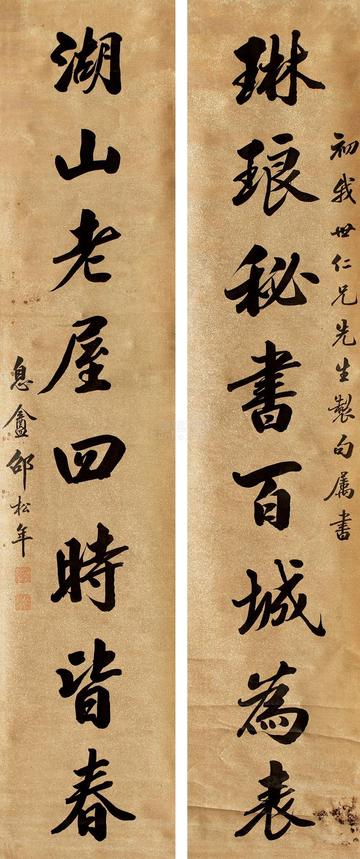 初我世仁兄先生製句属書
琳琅秘書百城為表
湖山老屋四時皆春
息盦邵松年